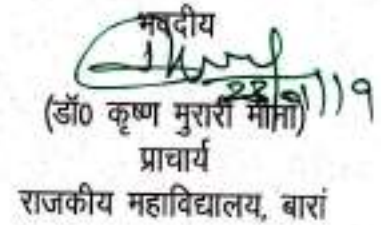 भवदीय
(डॉ0 कृष्ण मुरारी मीणा)
प्राचार्य
राजकीय महाविद्यालय, बारां